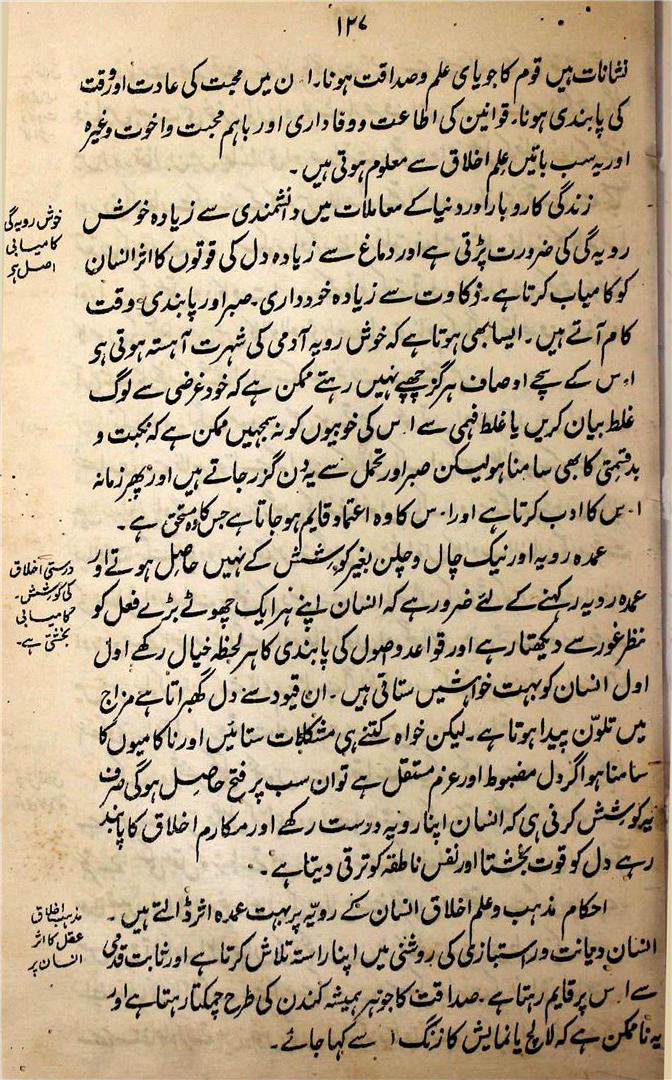 ۱۲۷
نشانات ہیں قوم کا جویای علم وصداقت ہونا۔ ان میں محبت کی عادت اور وقت
کی پابندی ہونا۔ قوانین کی اطاعت ووفاداری اور باہم محبت واخوت وغیرہ
اور یہ سب باتیں علم اخلاق سے معلوم ہوتی ہیں۔
زندگی کاروبار اور دنیا کے معاملات میں دانشمندی سے زیادہ خوش
رویہ گی کی ضرورت پڑتی ہے اور دماغ سے زیادہ دل کی قوتوں کا اثر انسان
کو کامیاب کرتا ہے۔ ذکاوت سے زیادہ خودداری۔ صبر اور پابندی وقت
کام آتے ہیں۔ ایسا بھی ہوتا ہے کہ خوش رویہ آدمی کی شہرت آہستہ ہوتی ہی
اس کے سچے اوصاف ہرگز چھپے نہیں رہتے ممکن ہے کہ خود غرضی سے لوگ
غلط بیان کریں یا غلط فہمی سے اس کی خوبیوں کو نہ سمجہیں ممکن ہے کہ نکبت و
بدقسمتی کا بھی سامنا ہو لیکن صبر اور تحمل سے یہ دن گزر جاتے ہیں اور پھر زمانہ
اس کا ادب کرتا ہے اور اس کا وہ اعتماد قایم ہو جاتا ہے جس کا وہ مستحق ہے۔
خوش رویہ گی
کامیابی
اصل ہی
عمدہ رویہ اور نیک چال وچلن بغیر کوشش کے نہیں حاصل ہوتے اور
عمدہ رویہ رکہنے کے لئے ضرور ہے کہ انسان اپنے ہر ایک چھوٹے بڑے فعل کو
نظر غور سے دیکھتا رہے اور قواعد وصول کی پابندی کا ہر لحظہ خیال رکھے اول
اول انسان کو بہت خواہشیں ستاتی ہیں۔ ان قیود سے دل گھبراتا ہے مزاج
میں تلوّن پیدا ہوتا ہے۔ لیکن خواہ کتنے ہی مشکلات ستائیں اور ناکامیوں کا
سامنا ہو اگر دل مضبوط اور عزم مستقل ہے تو ان سب پر فتح حاصل ہوگی صرف
یہ کوشش کرنی ہی کہ انسان اپنا رویہ درست رکھے اور مکارم اخلاق کا پابند
رہے دل کو قوت بخشتا اور نفس ناطقہ کو ترقی دیتا ہے۔
درستی اخلاق
کی کوشش۔
کامیابی
بخشتی ہے۔
احکام مذہب وعلم اخلاق انسان کے رویہ پر بہت عمدہ اثر ڈالتے ہیں۔
انسان دیانت وراستبازی کی روشنی میں اپنا راستہ تلاش کرتا ہے اور ثابت قدمی
سے اس پر قایم رہتا ہے۔ صداقت کا جوہر ہمیشہ کندن کی طرح چمکتا رہتا ہے اور
یہ ناممکن ہے کہ لالچ یا نمایش کا زنگ اسے کہا جائے۔
مذہب اخلاق
عقل کا اثر
انسان پر